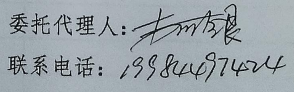 委托代理人：
联系电话：19984497424